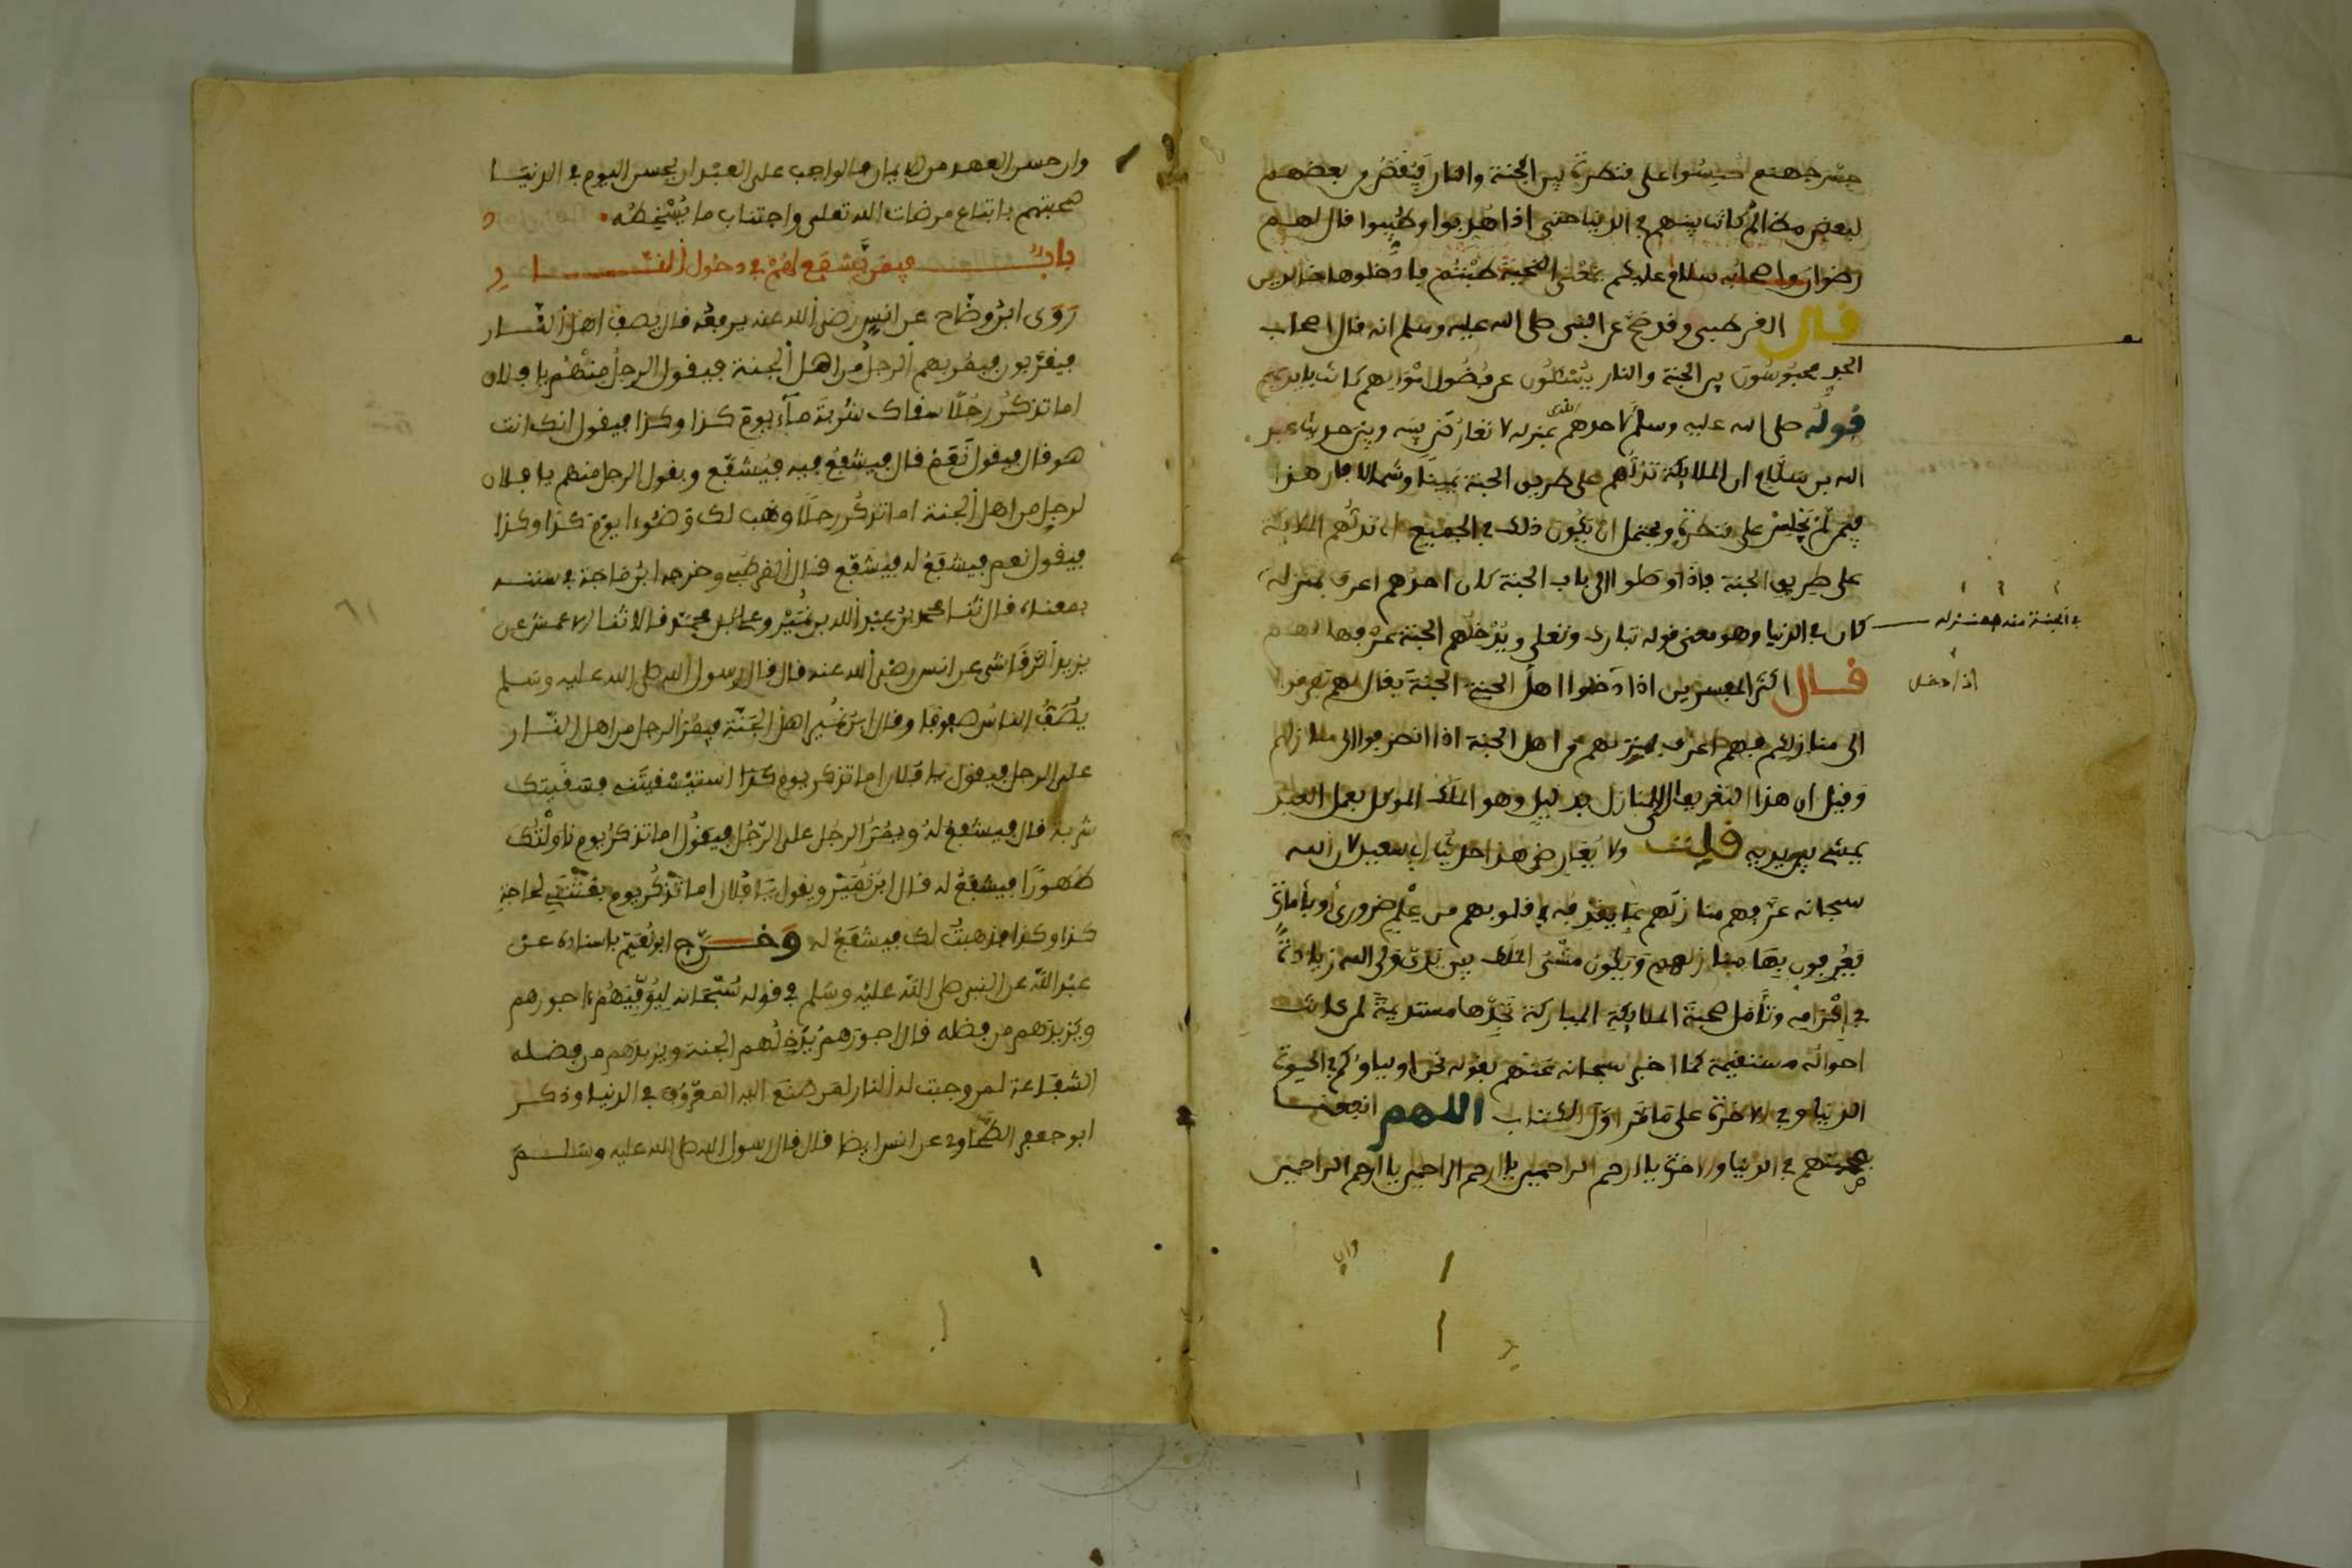 جسر جهنم حبسوا على قنطرة بين الجنة والنار فيقص من بعضهم
لبعض مظالم كانت بينهم في الدنيا حتى اذا هذبوا وطيبوا قال لهم
رضوان واصحابه سلام عليكم بمعنى التحية طبتم فادخلوها خالدين
قال القرطبي وقد صح عن النبي صلى الله عليه وسلم انه قال اصحاب
الجد محبوسون بين الجنة والنار يسئلون عن فضول اموالهم كانت بايديهم
قوله صلى الله عليه وسلم لاحدهم اهدى بمنزله لا تعارض بينه وبين حديث عبد
الله بن سلام ان الملائكة تدلهم على طريق الجنة يمينا وشمالا فان هذا
فيمن لم يحبس على قنطرة ويحتمل ان يكون ذلك في الجميع اي تدلهم الملائكة
على طريق الجنة فاذا وصلوا الى باب الجنة كان احدهم اعرف بمنزله
في الجنة منه بمنزله
كان في الدنيا وهو معنى قوله تبارك وتعلى ويدخلهم الجنة عرفها لهم
قال اكثر المفسرين اذا دخلوا اهل الجنة الجنة يقال لهم تفرقوا
اذا دخل
الى منازلكم فهم اعرف بمنزلهم من اهل الجنة اذا انصرفوا الى منازلهم
وقيل ان هذا التعريف الى المنازل بدليل وهو الملك الموكل بعمل العبد
يمشي بين يديه قلت ولا يعارض هذا حديث ابي سعيد لان الله
سبحانه عرفهم منازلهم بما يقذفه في قلوبهم من علم ضروري او بامارة
يعرفون بها منازلهم ويكون مشي الملك بين يدي ولي الله زيادة
في اكرامه وتامل صحبة الملائكة المباركة تجدها مستديمة لمن كانت
احواله مستقيمة كما اخبر سبحانه عنهم بقوله نحن اولياوكم في الحيوة
الدنيا وفي الاخرة على ما مر اول الكتاب اللهم انفعنا
بمحبتهم في الدنيا والاخرة يا ارحم الراحمين يا ارحم الراحمين يا ارحم الراحمين
وان
وان حسن العهد من الايمان فالواجب على العبد ان يحسن اليوم في الدنيا
صحبتهم باتباع مرضات الله تعلى واجتناب ما يسخطه
باب فيمن يشفع لهم في دخول النار
روى ابن وضاح عن انس رضي الله عنه يرفعه قال يصف اهل النار
فيقربون فيمر بهم الرجل من اهل الجنة فيقول الرجل منهم يا فلان
اما تذكر رجلا سقاك شربة ماء يوم كذا وكذا فيقول انك انت
هو قال فيقول نعم قال فيشفع فيه فيشفع ويقول الرجل منهم يا فلان
لرجل من اهل الجنة اما تذكر رجلا وهب لك وضوءا يوم كذا وكذا
فيقول نعم فيشفع له فيشفع قال القرطبي وخرجه ابن ماجة في سننه
بمعناه قال ثنا محمد بن عبد الله بن نمير وعلي بن محمد قالا ثنا الاعمش عن
يزيد الرقاشي عن انس رضي الله عنه قال قال رسول الله صلى الله عليه وسلم
يصف الناس صفوفا وقال ابن نمير اهل الجنة فيمر الرجل من اهل النار
على الرجل فيقول يا فلان اما تذكر يوم كذا استسقيتني فسقيتك
شربة قال فيشفع له ويمر الرجل على الرجل فيقول اما تذكر يوم ناولتك
طهورا فيشفع له قال ابن نمير ويقول يا فلان اما تذكر يوم بعثتني لحاجة
كذا وكذا فذهبت لك فيشفع له وخرج ابو نعيم باسناده عن
عبد الله عن النبي صلى الله عليه وسلم في قوله سبحانه ليوفيهم اجورهم
ويزيدهم من فضله قال اجورهم يدخلهم الجنة ويزيدهم من فضله
الشفاعة لمن وجبت له النار لمن صنع اليه المعروف في الدنيا وذكر
ابو جعفر الطحاوي عن انس ايضا قال قال رسول الله صلى الله عليه وسلم